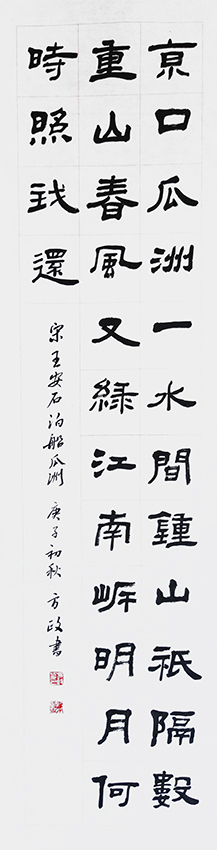 京口瓜洲一水間鍾山祇隔數
重山春風又綠江南岸明月何
時照我還
宋王安石泊船瓜洲 庚子初秋 方政書